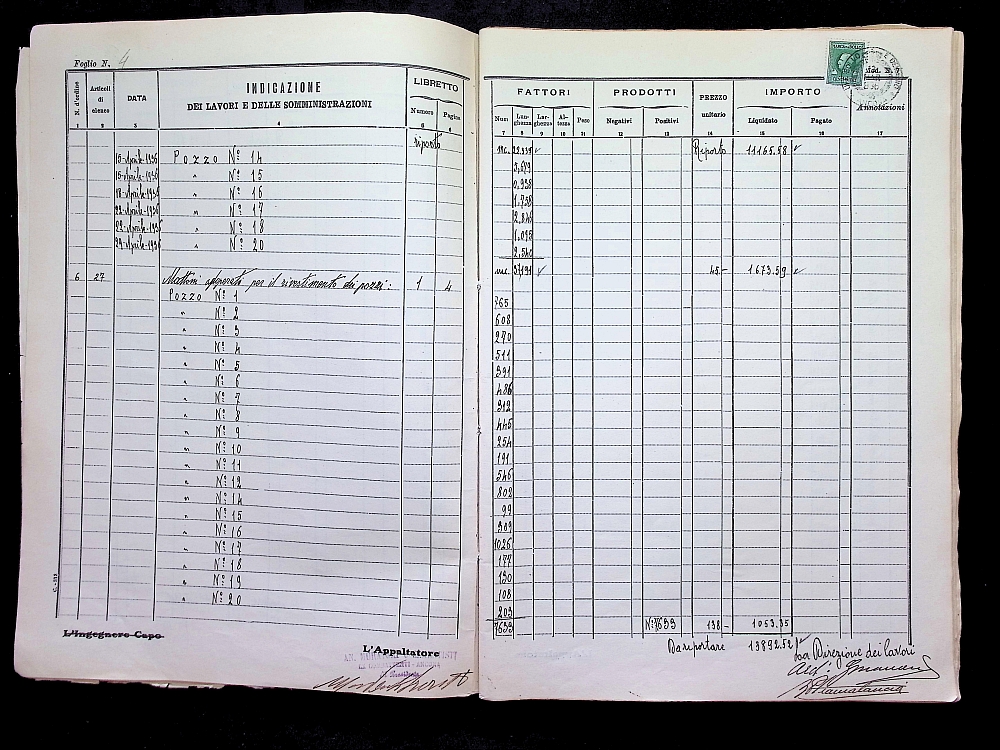 Foglio N. 4
N. d'ordine
Articoli di elenco
DATA
INDICAZIONE
DEI LAVORI E DELLE SOMMINISTRAZIONI
LIBRETTO
Numero
Pagina
1 2 3 4 5 6
riporto
15-Aprile-1936 Pozzo N° 14
15-Aprile-1936 " N° 15
18-Aprile-1936 " N° 16
22-Aprile-1936 " N° 17
22-Aprile-1936 " N° 18
29-Aprile-1936 " N° 20
6 27 Mattoni per il rivestimento dei pozzi: 1 4
Pozzo N° 1
" N° 2
" N° 3
" N° 4
" N° 5
" N° 6
" N° 7
" N° 8
" N° 9
" N° 10
" N° 11
" N° 12
" N° 14
" N° 15
" N° 16
" N° 17
" N° 18
" N° 19
" N° 20
L'Ingegnere Capo
L'Appaltatore
FATTORI
PRODOTTI
PREZZO unitario
IMPORTO
Annotazioni
Num
Lunghezza
Larghezza
Altezza
Peso
Negativi
Positivi
Liquidato
Pagato
7 8 9 10 11 12 13 14 15 16 17
Riporto 11165.58
1.738
37.191 45.- 1673.59
365
608
270
511
391
486
312
445
254
191
546
802
99
309
1026
177
130
108
203
7633 N° 7633 138 - 1053.35
Da riportare 13892.52
La Direzione dei lavori